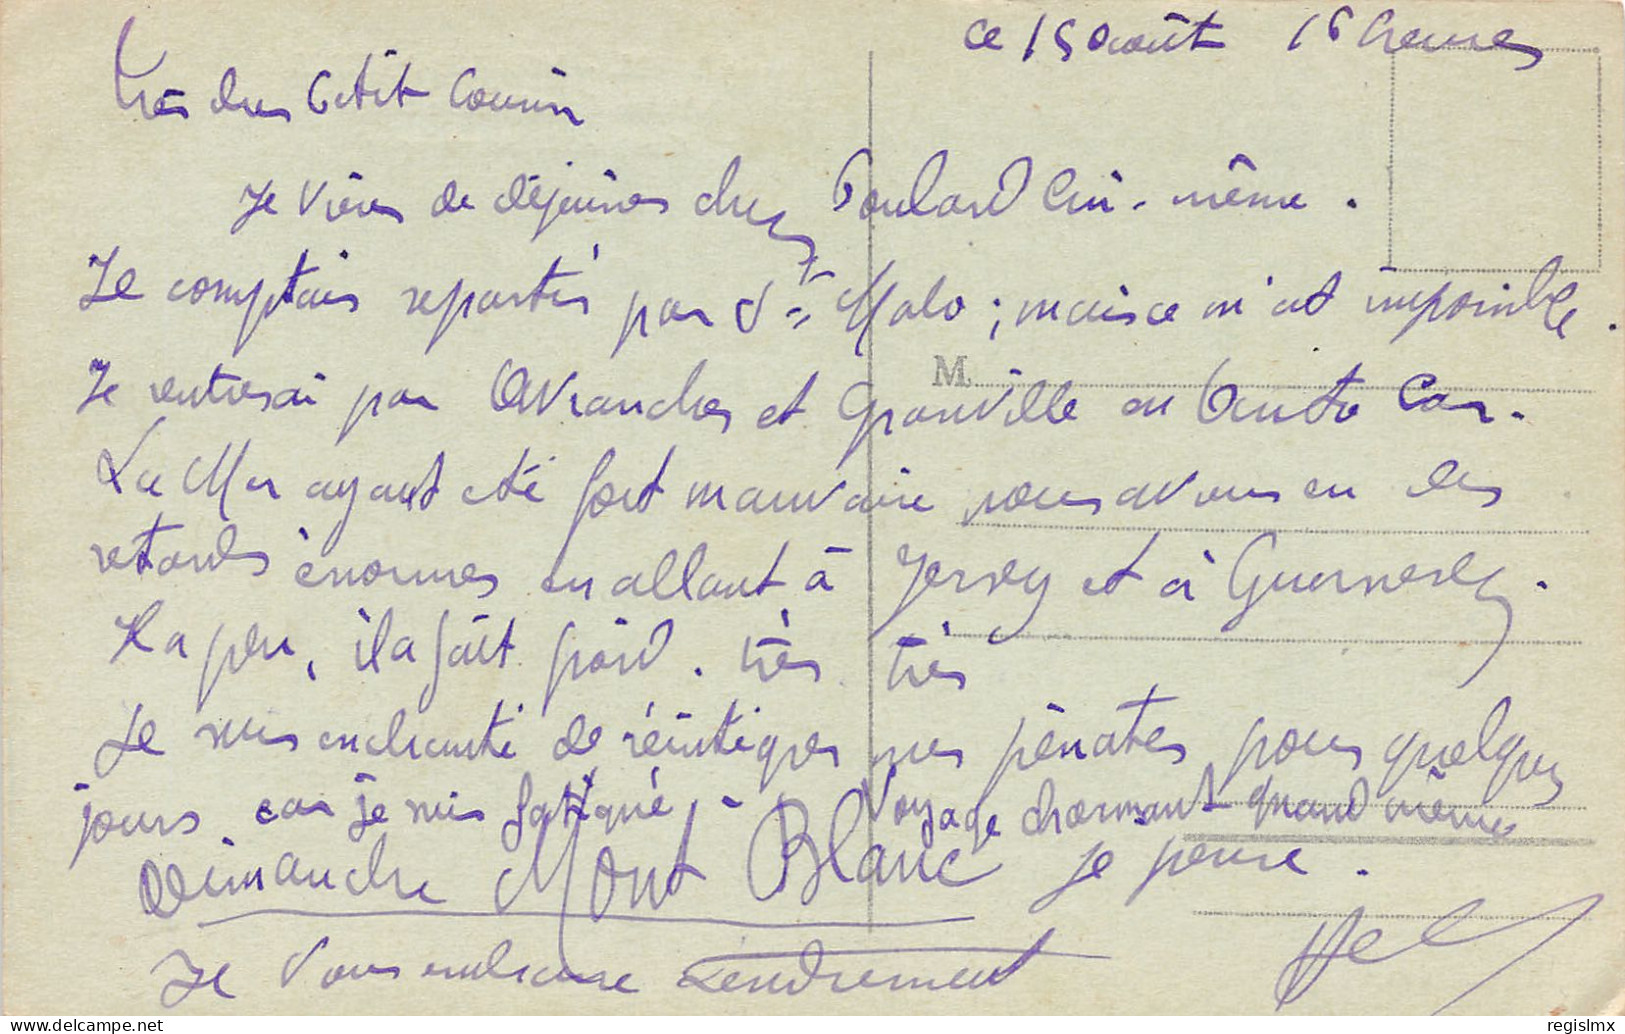 ce 15 août 16 heures
Très cher Petit Cousin
Je viens de déjeuner chez Poulard lui-même.
Je comptais repartir par St Malo ; mais ce m'est impossible.
Je rentrerai par Avranches et Granville en Auto Car.
M.
La Mer ayant été fort mauvaise nous avons eu des
retards énormes en allant à Jersey et à Guernesey.
Il a plu, il a fait froid. très très
Je suis enchanté de réintégrer mes pénates pour quelques
jours car je suis fatigué - Voyage charmant quand même
Dimanche Mont Blanc je pense.
Je vous embrasse tendrement
delcampe.net
regislmx